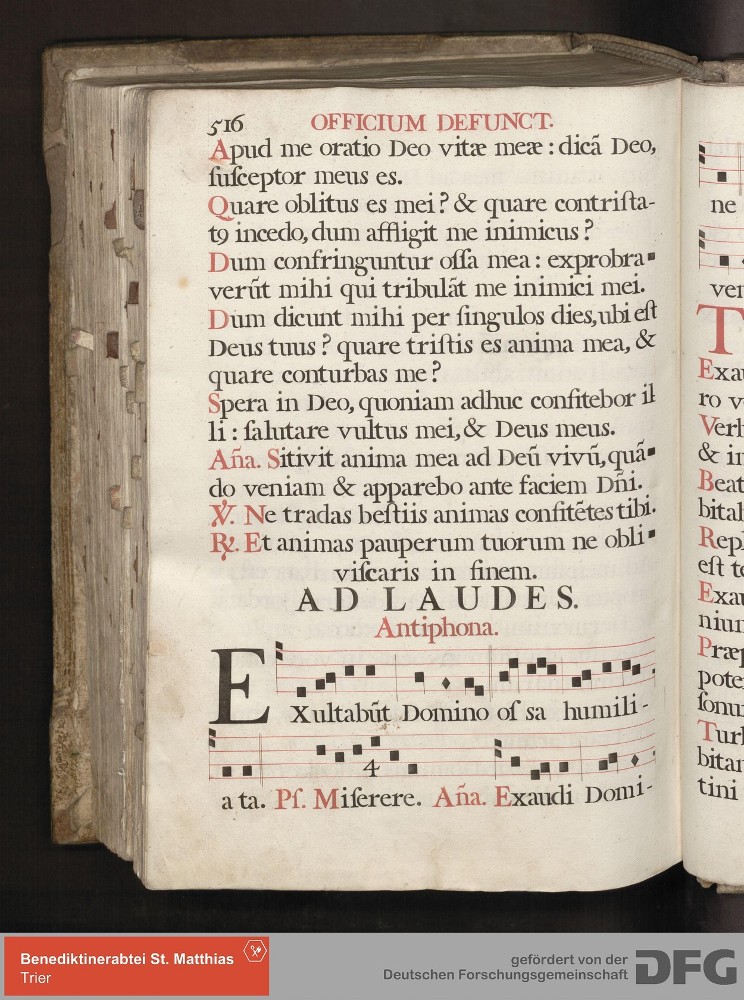 516 OFFICIUM DEFUNCT.
Apud me oratio Deo vitæ meæ : dicã Deo,
ſuſceptor meus es.
Quare oblitus es mei? & quare contriſta-
tꝯ incedo, dum affligit me inimicus?
Dum confringuntur oſſa mea : exprobra-
verũt mihi qui tribulãt me inimici mei.
Dum dicunt mihi per ſingulos dies, ubi eſt
Deus tuus? quare triſtis es anima mea, &
quare conturbas me?
Spera in Deo, quoniam adhuc confitebor il
li : ſalutare vultus mei, & Deus meus.
Aña. Sitivit anima mea ad Deũ vivũ, quã-
do veniam & apparebo ante faciem Dñi.
℣. Ne tradas beſtiis animas confitẽtes tibi.
℟. Et animas pauperum tuorum ne obli-
viſcaris in finem.
AD LAUDES.
Antiphona.
EXultabũt Domino oſ sa humili-
4
a ta. Pſ. Miſerere. Aña. Exaudi Domi-
ne
ven
T
Exau
ro v
Verb
& in
Beat
bital
Repl
eſt te
Exau
nium
Præp
pote
ſonu
Turb
bitan
tini
Benediktinerabtei St. Matthias
Trier
gefördert von der
Deutschen Forschungsgemeinschaft
DFG